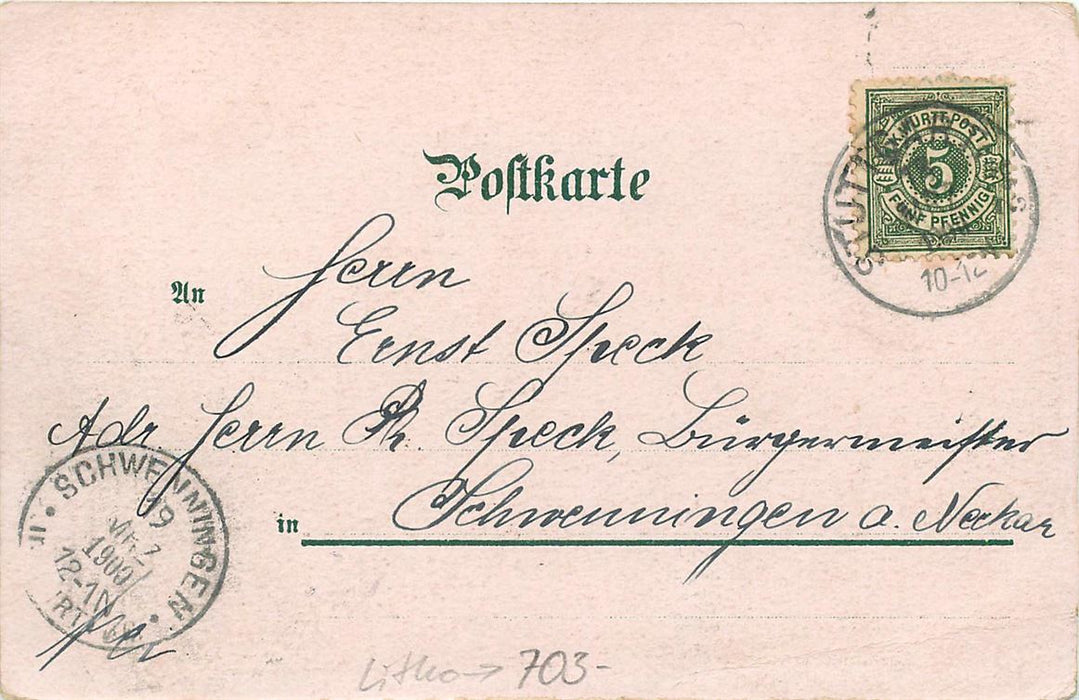 Postkarte
K. WÜRTT. POST
5
FÜNF PFENNIG
10-12
An
Herrn
Ernst Speck
Adr. Herrn R. Speck, Bürgermeister
in
Schwenningen a. Neckar
SCHWENNINGEN
19
1900
frei
Litho → 703-